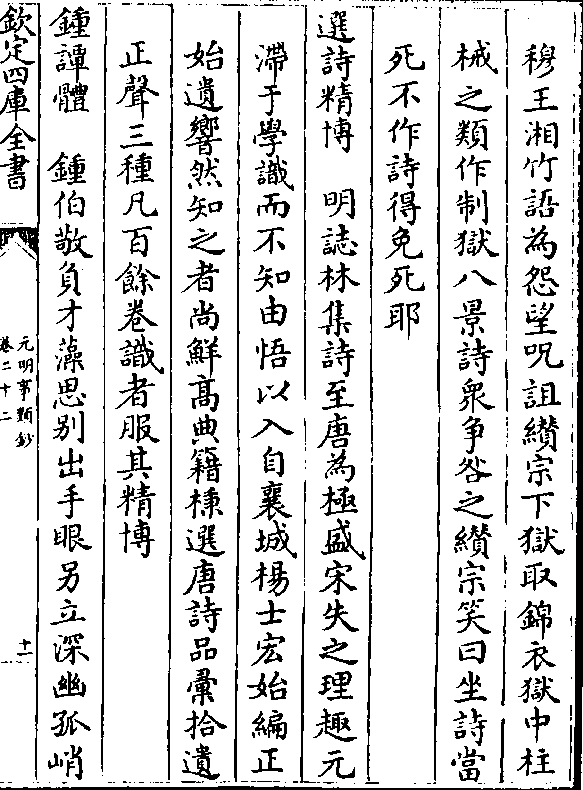 穆王湘竹語為怨望呪詛纉宗下獄取錦衣獄中柱
械之類作制獄八景詩衆争咎之纉宗笑曰坐詩當
死不作詩得免死耶
選詩精博　明誌林集詩至唐為極盛宋失之理趣元
滯于學識而不知由悟以入自襄城楊士宏始編正
始遺響然知之者尚鮮髙典籍棟選唐詩品彚拾遺
正聲三種凡百餘卷識者服其精博
鍾譚體　鍾伯敬負才藻思别出手眼另立深幽孤峭
欽定四庫全書
元明事類鈔
卷二十二
十一